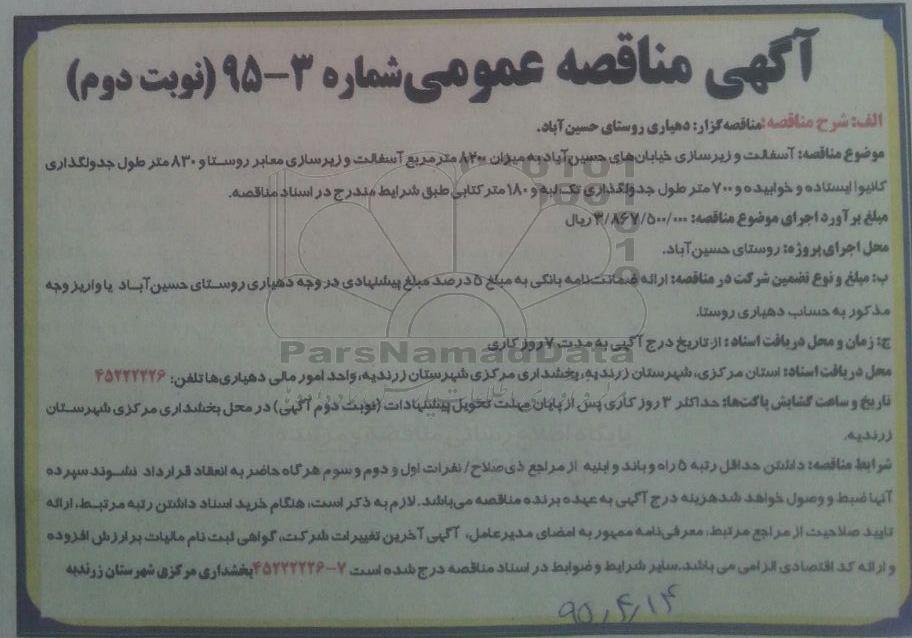 آگهی مناقصه عمومی شماره ۳-۹۵ (نوبت دوم)
الف: شرح مناقصه: مناقصه‌گزار: دهیاری روستای حسین‌آباد.
موضوع مناقصه: آسفالت و زیرسازی خیابان‌های حسین‌آباد به میزان ۸۲۰۰ متر مربع آسفالت و زیرسازی معابر روستا و ۸۳۰ متر طول جدولگذاری
کانیوا ایستاده و خوابیده و ۷۰۰ متر طول جدولگذاری تک لبه و ۱۸۰ متر کتابی طبق شرایط مندرج در اسناد مناقصه.
مبلغ برآورد اجرای موضوع مناقصه: ۳/۸۶۷/۵۰۰/۰۰۰ ریال
محل اجرای پروژه: روستای حسین‌آباد.
ب: مبلغ و نوع تضمین شرکت در مناقصه: ارائه ضمانت‌نامه بانکی به مبلغ ۵ درصد مبلغ پیشنهادی در وجه دهیاری روستای حسین‌آباد یا واریز وجه
مذکور به حساب دهیاری روستا.
ParsNamadData
ج: زمان و محل دریافت اسناد: از تاریخ درج آگهی به مدت ۷ روز کاری
محل دریافت اسناد: استان مرکزی، شهرستان زرندیه، بخشداری مرکزی شهرستان زرندیه، واحد امور مالی دهیاری‌ها تلفن: ۴۵۲۲۲۲۲۶
تاریخ و ساعت گشایش پاکت‌ها: حداکثر ۳ روز کاری پس از پایان مهلت تحویل پیشنهادات (نوبت دوم آگهی) در محل بخشداری مرکزی شهرستان
زرندیه.
شرایط مناقصه: داشتن حداقل رتبه ۵ راه و باند و ابنیه از مراجع ذی‌صلاح/ نفرات اول و دوم و سوم هرگاه حاضر به انعقاد قرارداد نشوند سپرده
آنها ضبط و وصول خواهد شد هزینه درج آگهی به عهده برنده مناقصه می‌باشد. لازم به ذکر است، هنگام خرید اسناد داشتن رتبه مرتبط، ارائه
تایید صلاحیت از مراجع مرتبط، معرفی‌نامه ممهور به امضای مدیرعامل، آگهی آخرین تغییرات شرکت، گواهی ثبت نام مالیات بر ارزش افزوده
و ارائه کد اقتصادی الزامی می باشد. سایر شرایط و ضوابط در اسناد مناقصه درج شده است ۷-۴۵۲۲۲۲۲۶ بخشداری مرکزی شهرستان زرندیه
۹۵/۴/۱۴